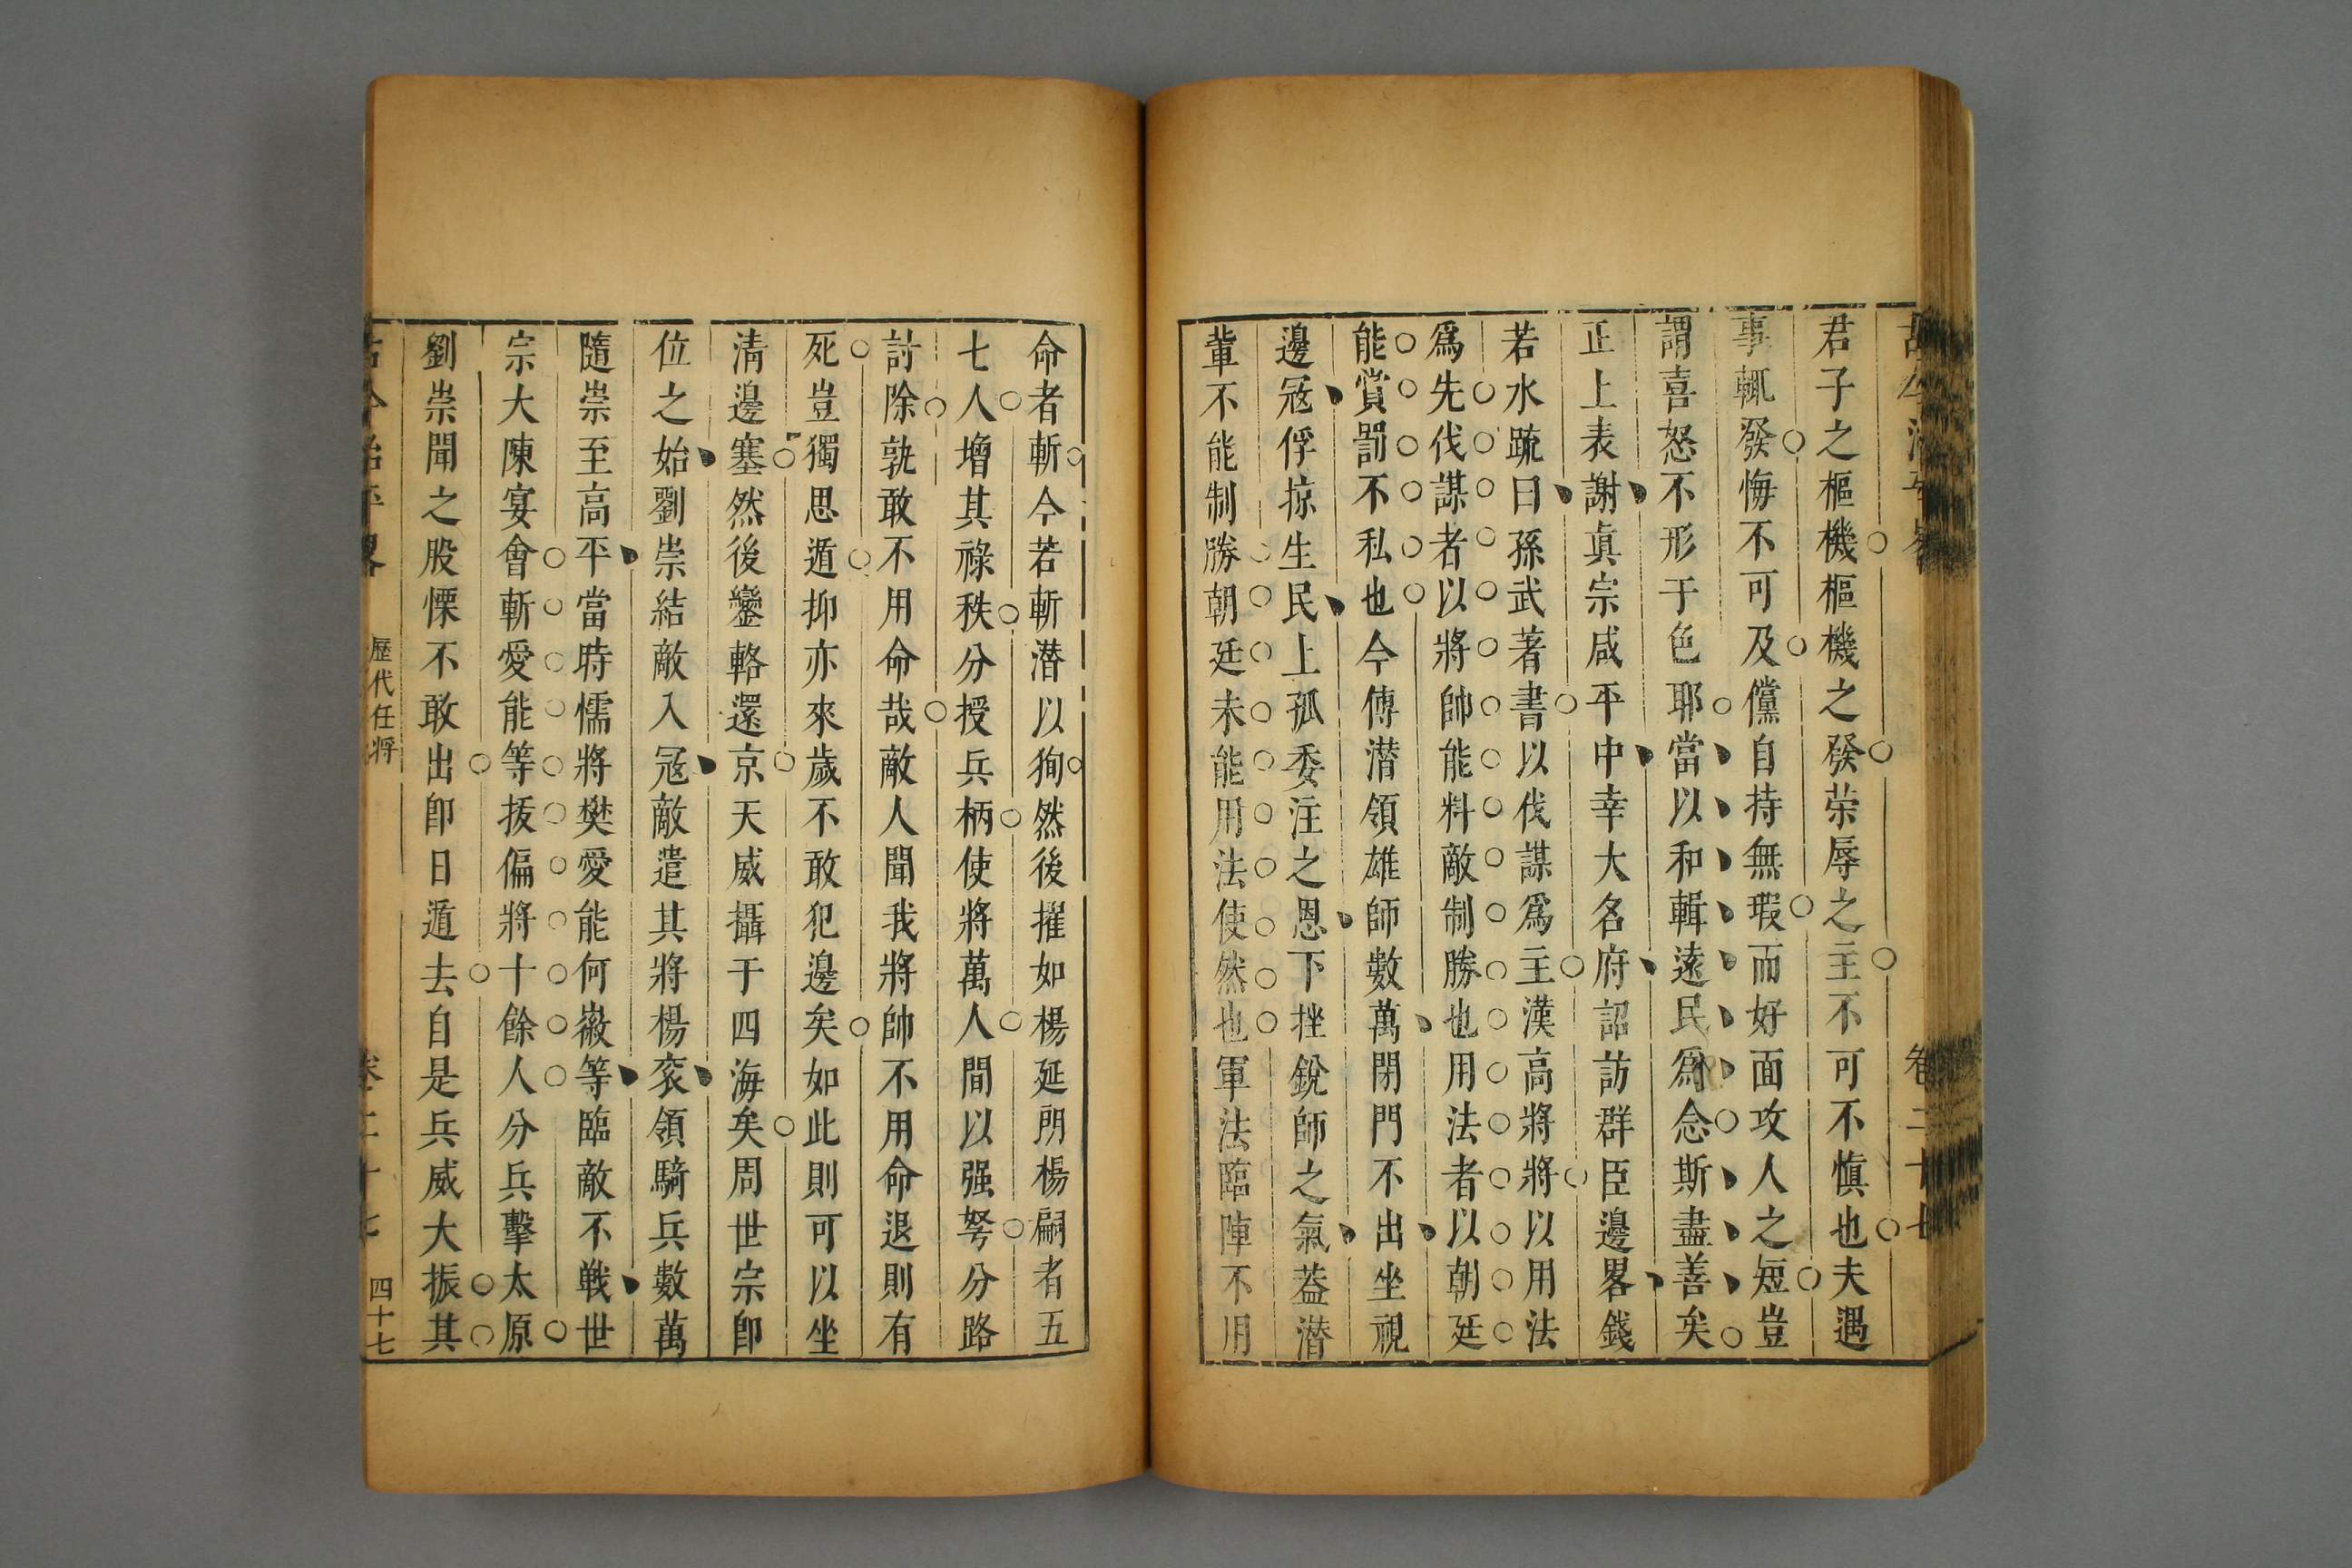 君子之樞機樞機之發荣辱之主不可不慎也夫遇
事輒發悔不可及儻自持無瑕而好面攻人之短豈
謂喜怒不形于色耶當以和輯遠民爲念斯盡善矣
正上表謝眞宗咸平中幸大名府詔訪群臣邊畧錢
若水䟽曰孫武著書以伐謀爲主漢高將將以用法
爲先伐謀者以將帥能料敵制勝也用法者以朝廷
能賞罰不私也今傅潜領雄師數萬閉門不出坐視
邊冦俘掠生民上孤委注之恩下挫銳師之氣葢潜
軰不能制勝朝廷未能用法使然也軍法臨陣不用
命者斬今若斬潜以狥然後擢如楊延朗楊嗣者五
七人增其祿秩分授兵柄使將萬人間以强弩分路
討除孰敢不用命哉敵人聞我將帥不用命退則有
死豈獨思遁抑亦來歲不敢犯邊矣如此則可以坐
淸邊塞然後鑾輅還京天威攝于四海矣周世宗卽
位之始劉崇結敵入冦敵遣其將楊衮領騎兵數萬
隨崇至高平當時懦將樊愛能何徽等臨敵不戰世
宗大陳宴會斬愛能等拔偏將十餘人分兵擊太原
劉崇聞之股慄不敢出卽日遁去自是兵威大振其
古今治平畧
歷代任將
卷二十七
四十七